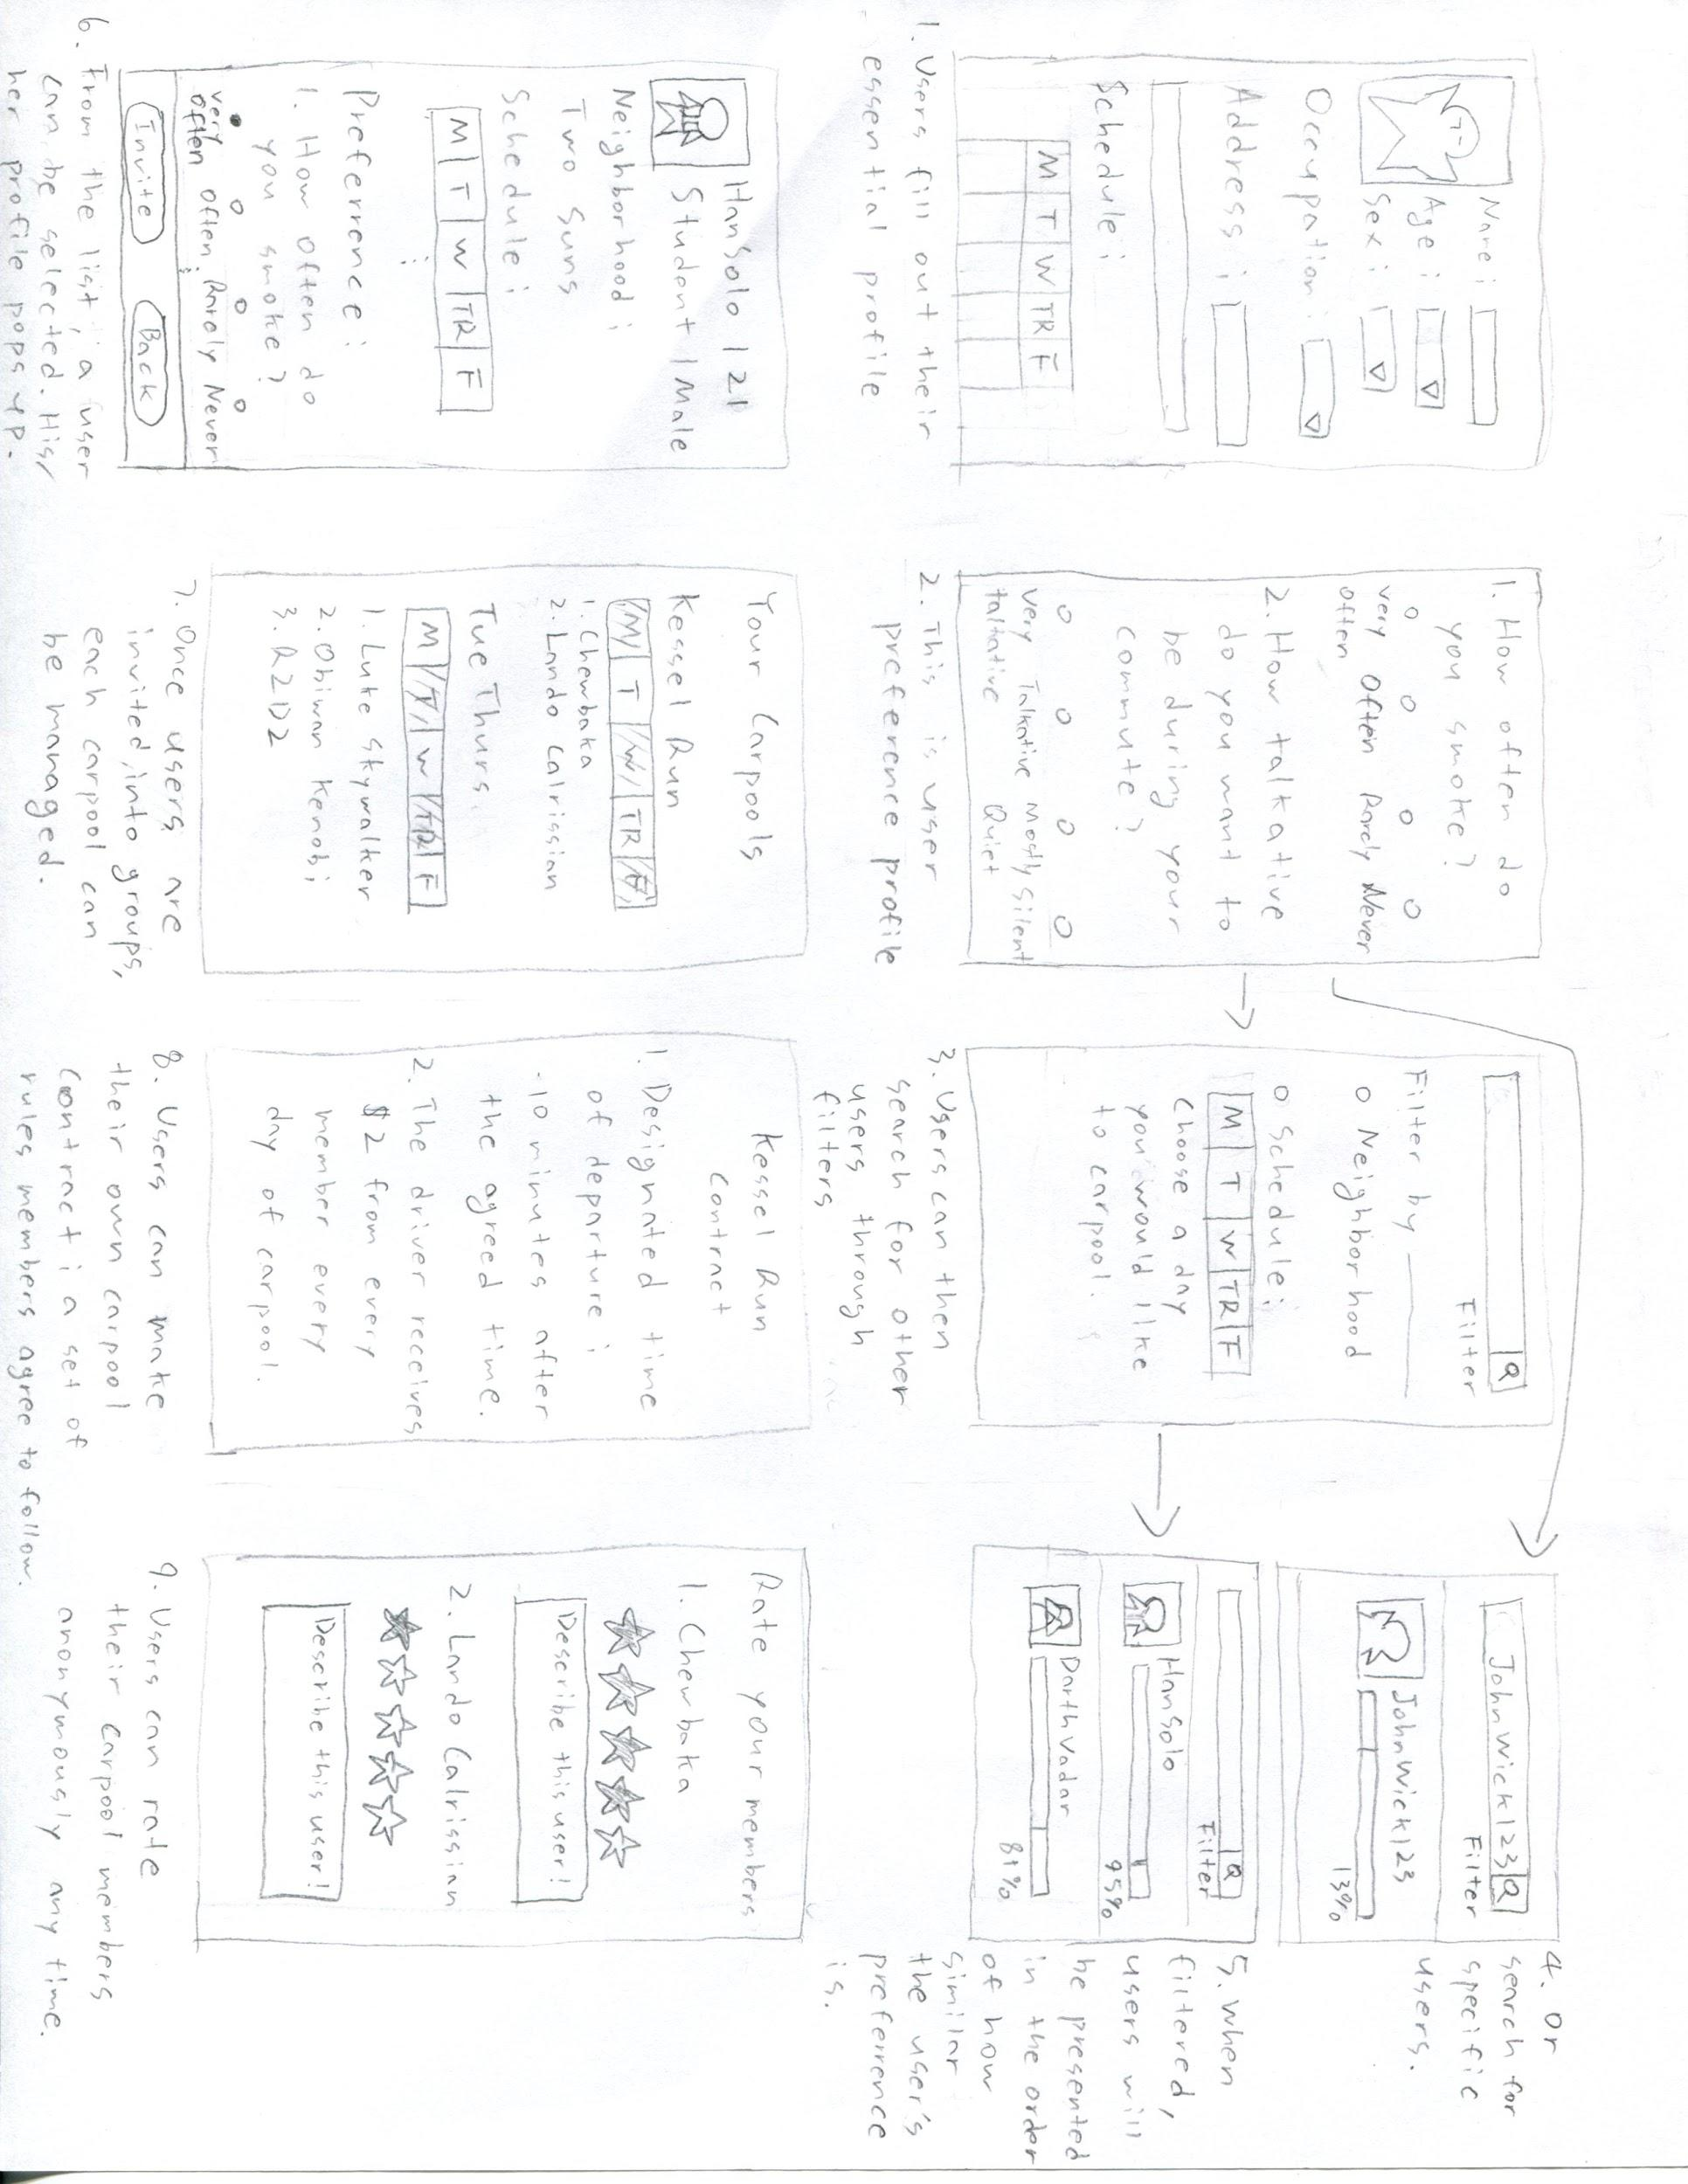 Name:
Age:
Sex:
Occupation:
Address:
Schedule:
M T W TR F
1. Users fill out their
essential profile
1. How often do
you smoke?
very often Often Rarely Never
2. How talkative
do you want to
be during your
commute?
Very talkative Talkative Mostly Quiet Silent
2. This is user
preference profile
Q
Filter
Filter by
Neighborhood
Schedule:
M T W TR F
Choose a day
you would like
to carpool.
3. Users can then
search for other
users through
filters
JohnWick123 Q
Filter
JohnWick123
13%
4. Or
search for
specific
users.
Q
Filter
HanSolo
95%
DarthVadar
81%
5. When
filtered,
users will
be presented
in the order
of how
similar
the user's
preference
is.
HanSolo | 21
Student | Male
Neighborhood:
Two Suns
Schedule:
M T W TR F
Preference:
1. How often do
you smoke?
very often Often Rarely Never
Invite Back
6. From the list, a user
can be selected. His/
her profile pops up.
Your Carpools
Kessel Run
M T W TR F
1. Chewbaka
2. Lando Calrissian
Tue Thurs.
M T W TR F
1. Luke Skywalker
2. Obiwan Kenobi
3. R2D2
7. Once users are
invited into groups,
each carpool can
be managed.
Kessel Run
Contract
1. Designated time
of departure:
-10 minutes after
the agreed time.
2. The driver receives
$2 from every
member every
day of carpool.
8. Users can make
their own carpool
contract: a set of
rules members agree to follow.
Rate your members
1. Chewbaka
Describe this user!
2. Lando Calrissian
Describe this user!
9. Users can rate
their carpool members
anonymously any time.